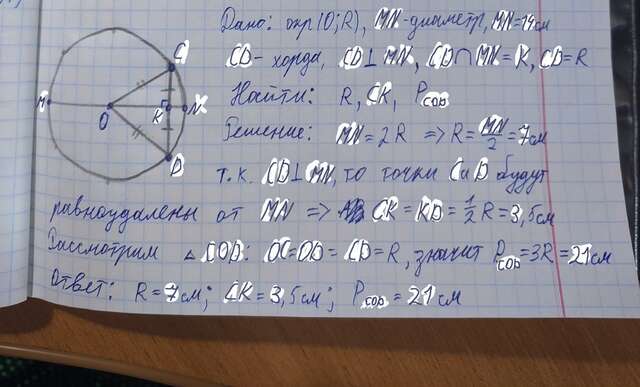 Дано: окр(O;R), MN-диаметр, MN=14см
CD-хорда, CD⊥MN, CD∩MN=K, CD=R
Найти: R, CK, P COD
Решение: MN=2R => R=MN/2=7см
т.к. CD⊥MN, то точки C и D будут
равноудалены от MN => CK=KD=1/2R=3,5см
Рассмотрим △COD: OC=OD=CD=R, значит P COD=3R=21см
Ответ: R=7см; CK=3,5см; P COD=21см
C
M
O
K
N
D